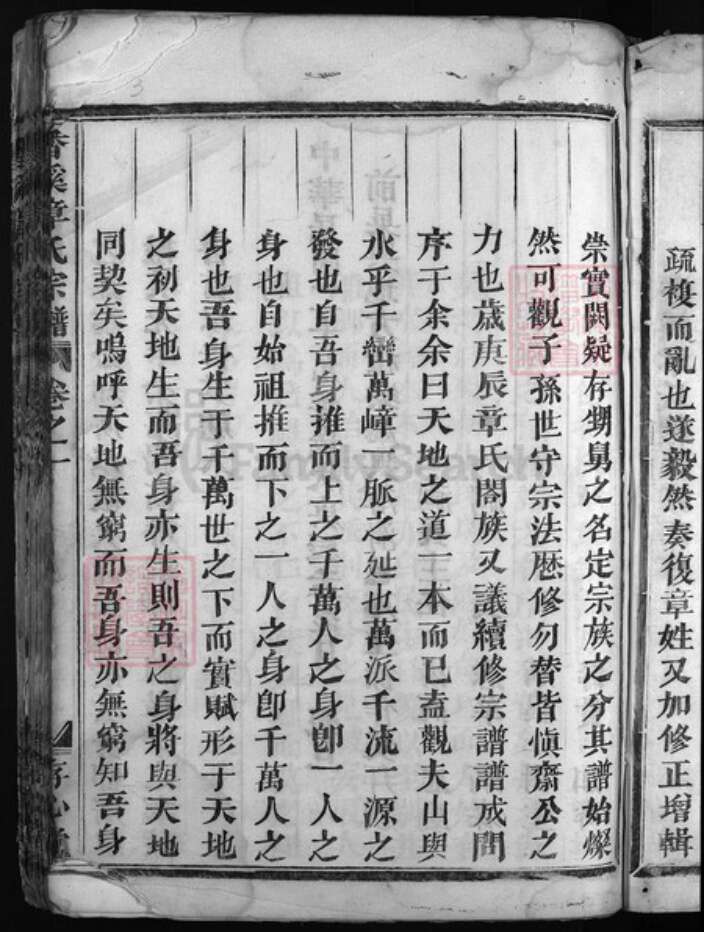 疏複而亂也遂毅然奏復章姓又加修正增輯
崇實闕疑存甥舅之名定宗族之分其譜始燦
然可觀子孫世守宗法歷修勿替皆慎齋公之
力也歲庚辰章氏閤族又議續修宗譜譜成問
序于余余曰天地之道一本而已盍觀夫山與
水乎千巒萬嶂一脈之延也萬派千流一源之
發也自吾身推而上之千萬人之身卽一人之
身也自始祖推而下之一人之身卽千萬人之
身也吾身生于千萬世之下而實賦形于天地
之初天地生而吾身亦生則吾之身將與天地
同契矣嗚呼天地無窮而吾身亦無窮知吾身
香溪章氏宗譜 卷之一
FamilySearch